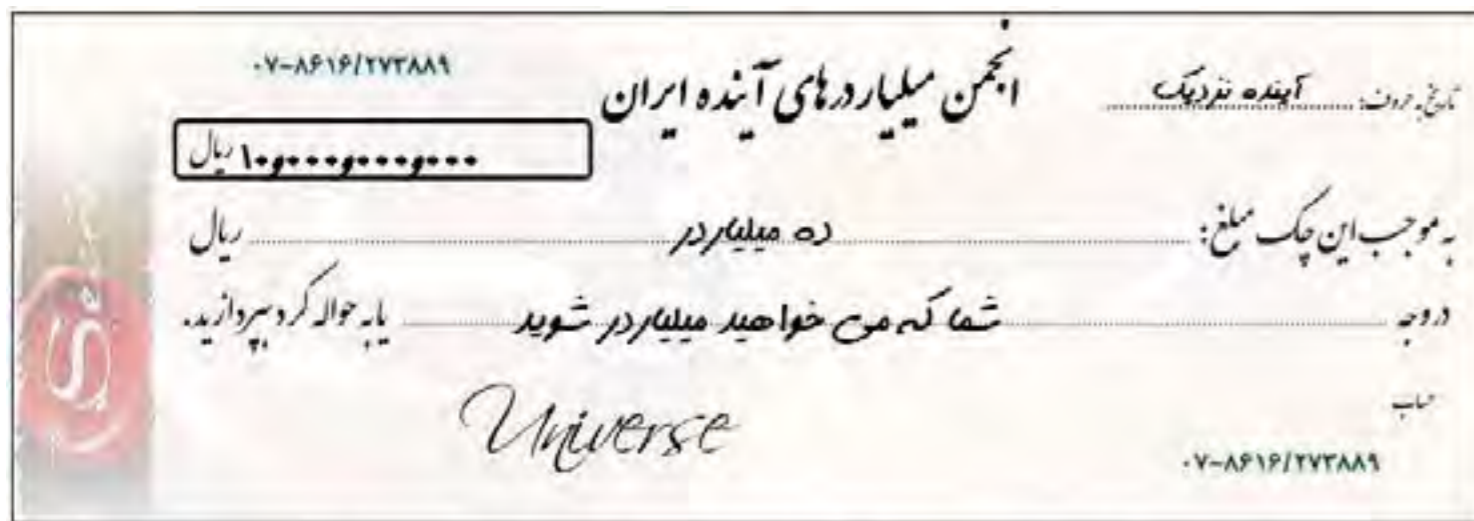 ۰۷-۸۶۱۶/۲۷۳۸۸۹
انجمن میلیاردرهای آینده ایران
تاریخ به حروف: آینده نزدیک
۱۰,۰۰۰,۰۰۰,۰۰۰ ریال
به موجب این چک مبلغ: ده میلیاردر ریال
در وجه شما که می خواهید میلیاردر شوید یا به حواله کرد بپردازید.
حساب
Universe
۰۷-۸۶۱۶/۲۷۳۸۸۹